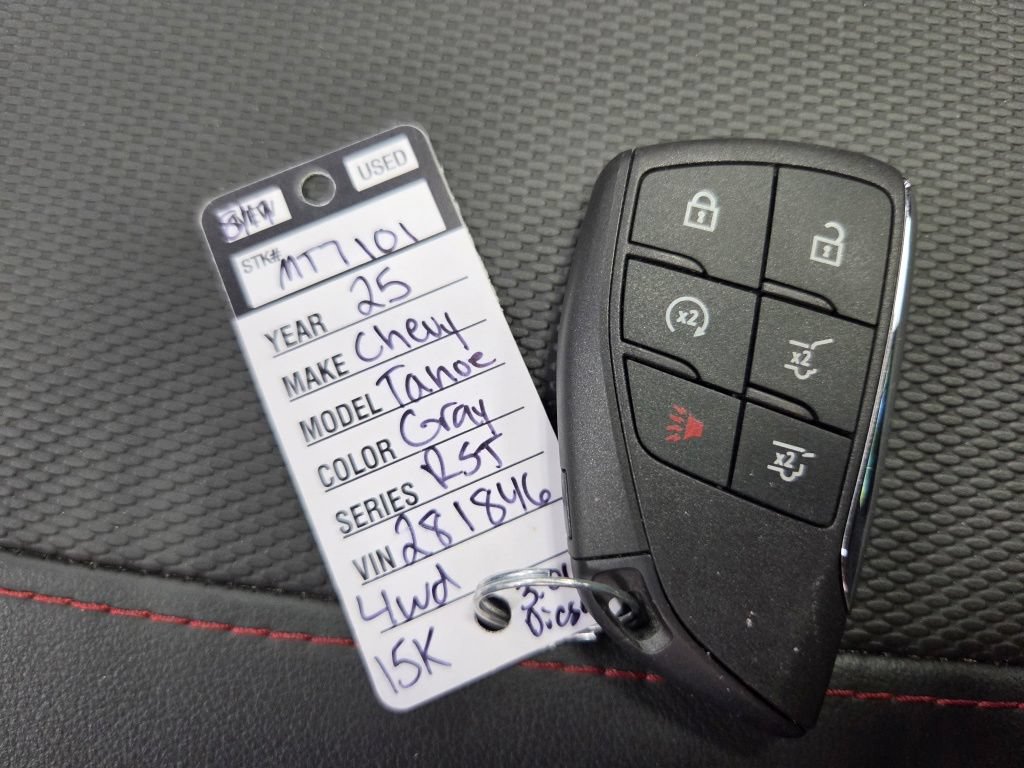 USED
STK# MT7101
YEAR 25
MAKE Chevy
MODEL Tahoe
COLOR Gray
SERIES RST
VIN 281846
4wd
15K
x2
x2
x2